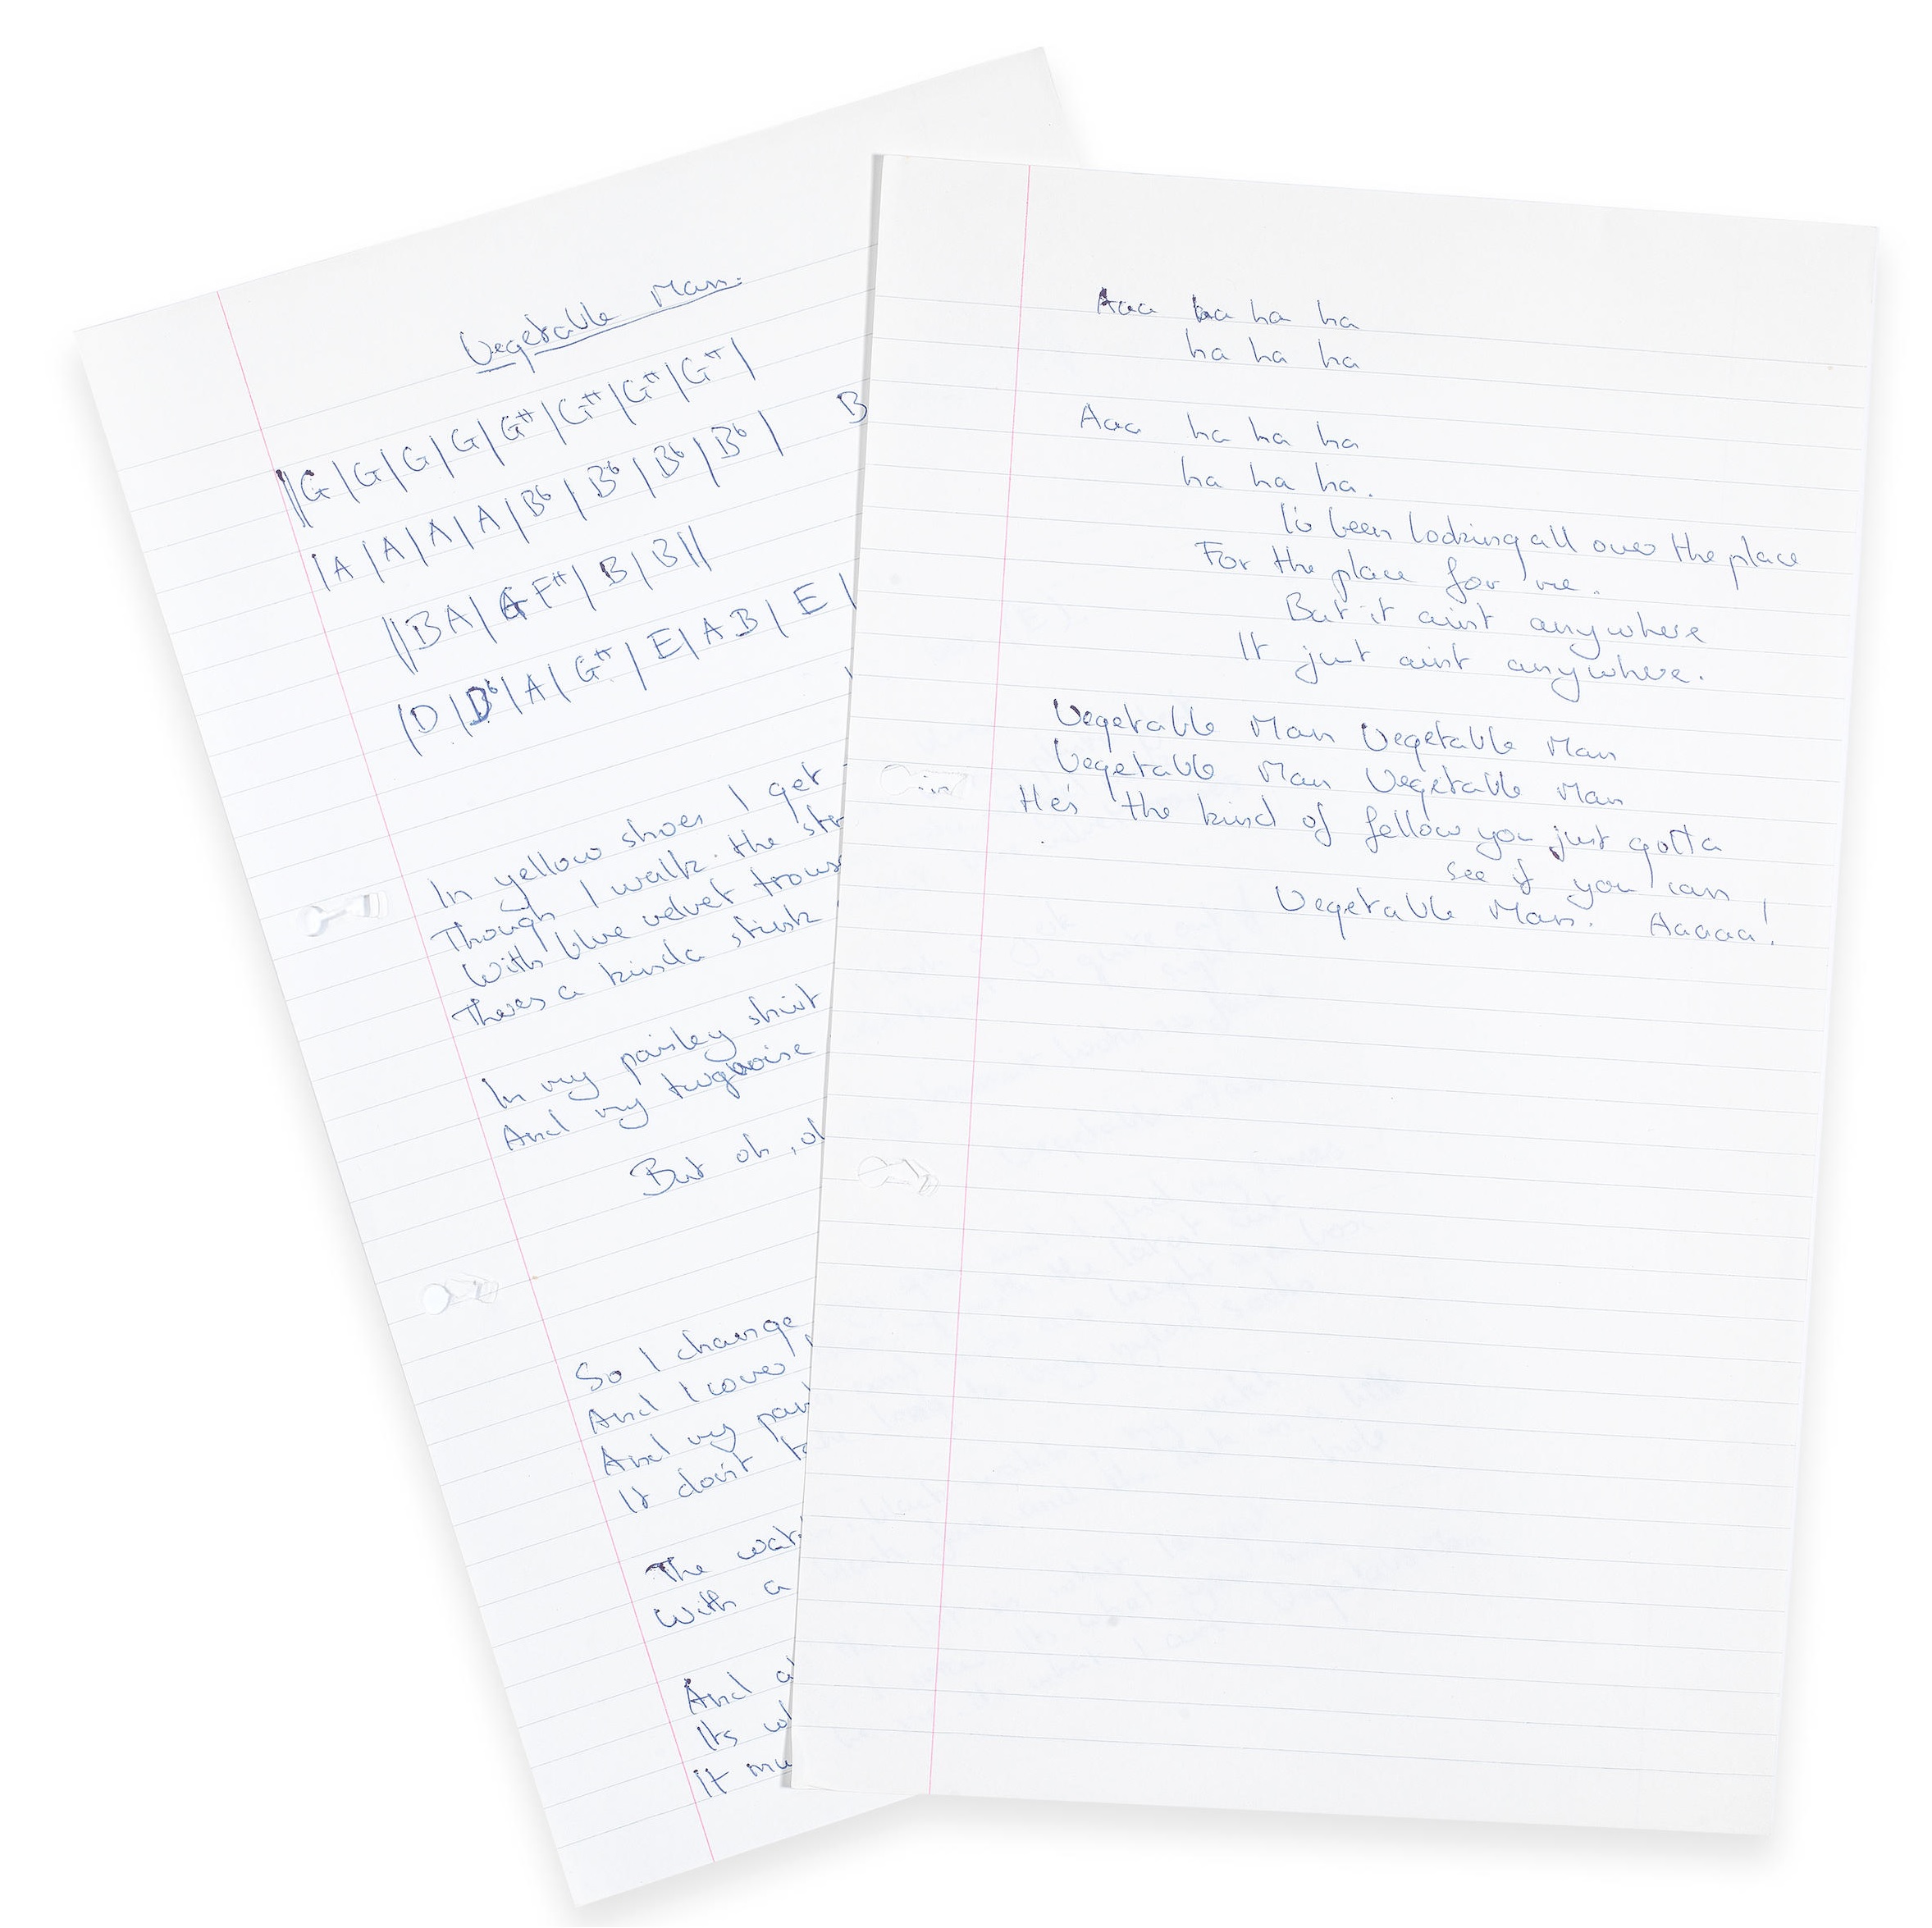 Vegetable Man.
||G|G|G|G|G#|G#|G#|G#|
|A|A|A|A|Bb|Bb|Bb|Bb| B
||BA|GF#|B|B||
|D|Db|A|G#|E|AB|E|
In yellow shoes I get
Though I walk the str
With blue velvet trous
Theres a kinda stink
In my paisley shirt
And my turqoise
But oh, oh
So I change
And I cover
And my pan
It don't
The wat
With a
And a
Its wh
It mu
Aaa ha ha ha
ha ha ha
Aaa ha ha ha
ha ha ha.
I've been looking all over the place
For the place for me.
But it aint anywhere
It just aint anywhere.
Vegetable Man Vegetable Man
Vegetable Man Vegetable Man
He's the kind of fellow you just gotta
see if you can
Vegetable Man. Aaaaa!